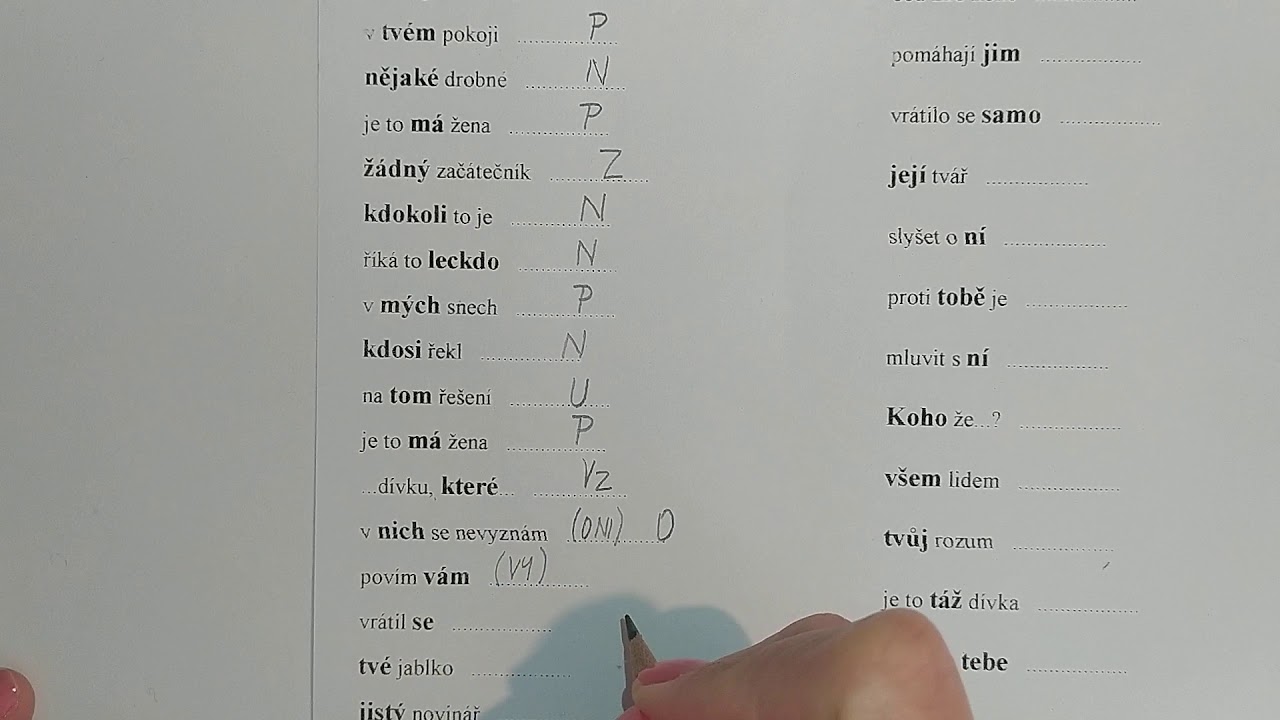 v tvém pokoji .................. P
nějaké drobné .................. N
je to má žena .................. P
žádný začátečník .................. Z
kdokoli to je .................. N
říká to leckdo .................. N
v mých snech .................. P
kdosi řekl .................. N
na tom řešení .................. U
je to má žena .................. P
...dívku, které... .................. VZ
v nich se nevyznám (ONI) .................. O
povím vám (VY) ..................
vrátil se ..................
tvé jablko ..................
jistý novinář
pomáhají jim ..................
vrátilo se samo ..................
její tvář ..................
slyšet o ní ..................
proti tobě je ..................
mluvit s ní ..................
Koho že...? ..................
všem lidem ..................
tvůj rozum ..................
je to táž dívka ..................
tebe ..................